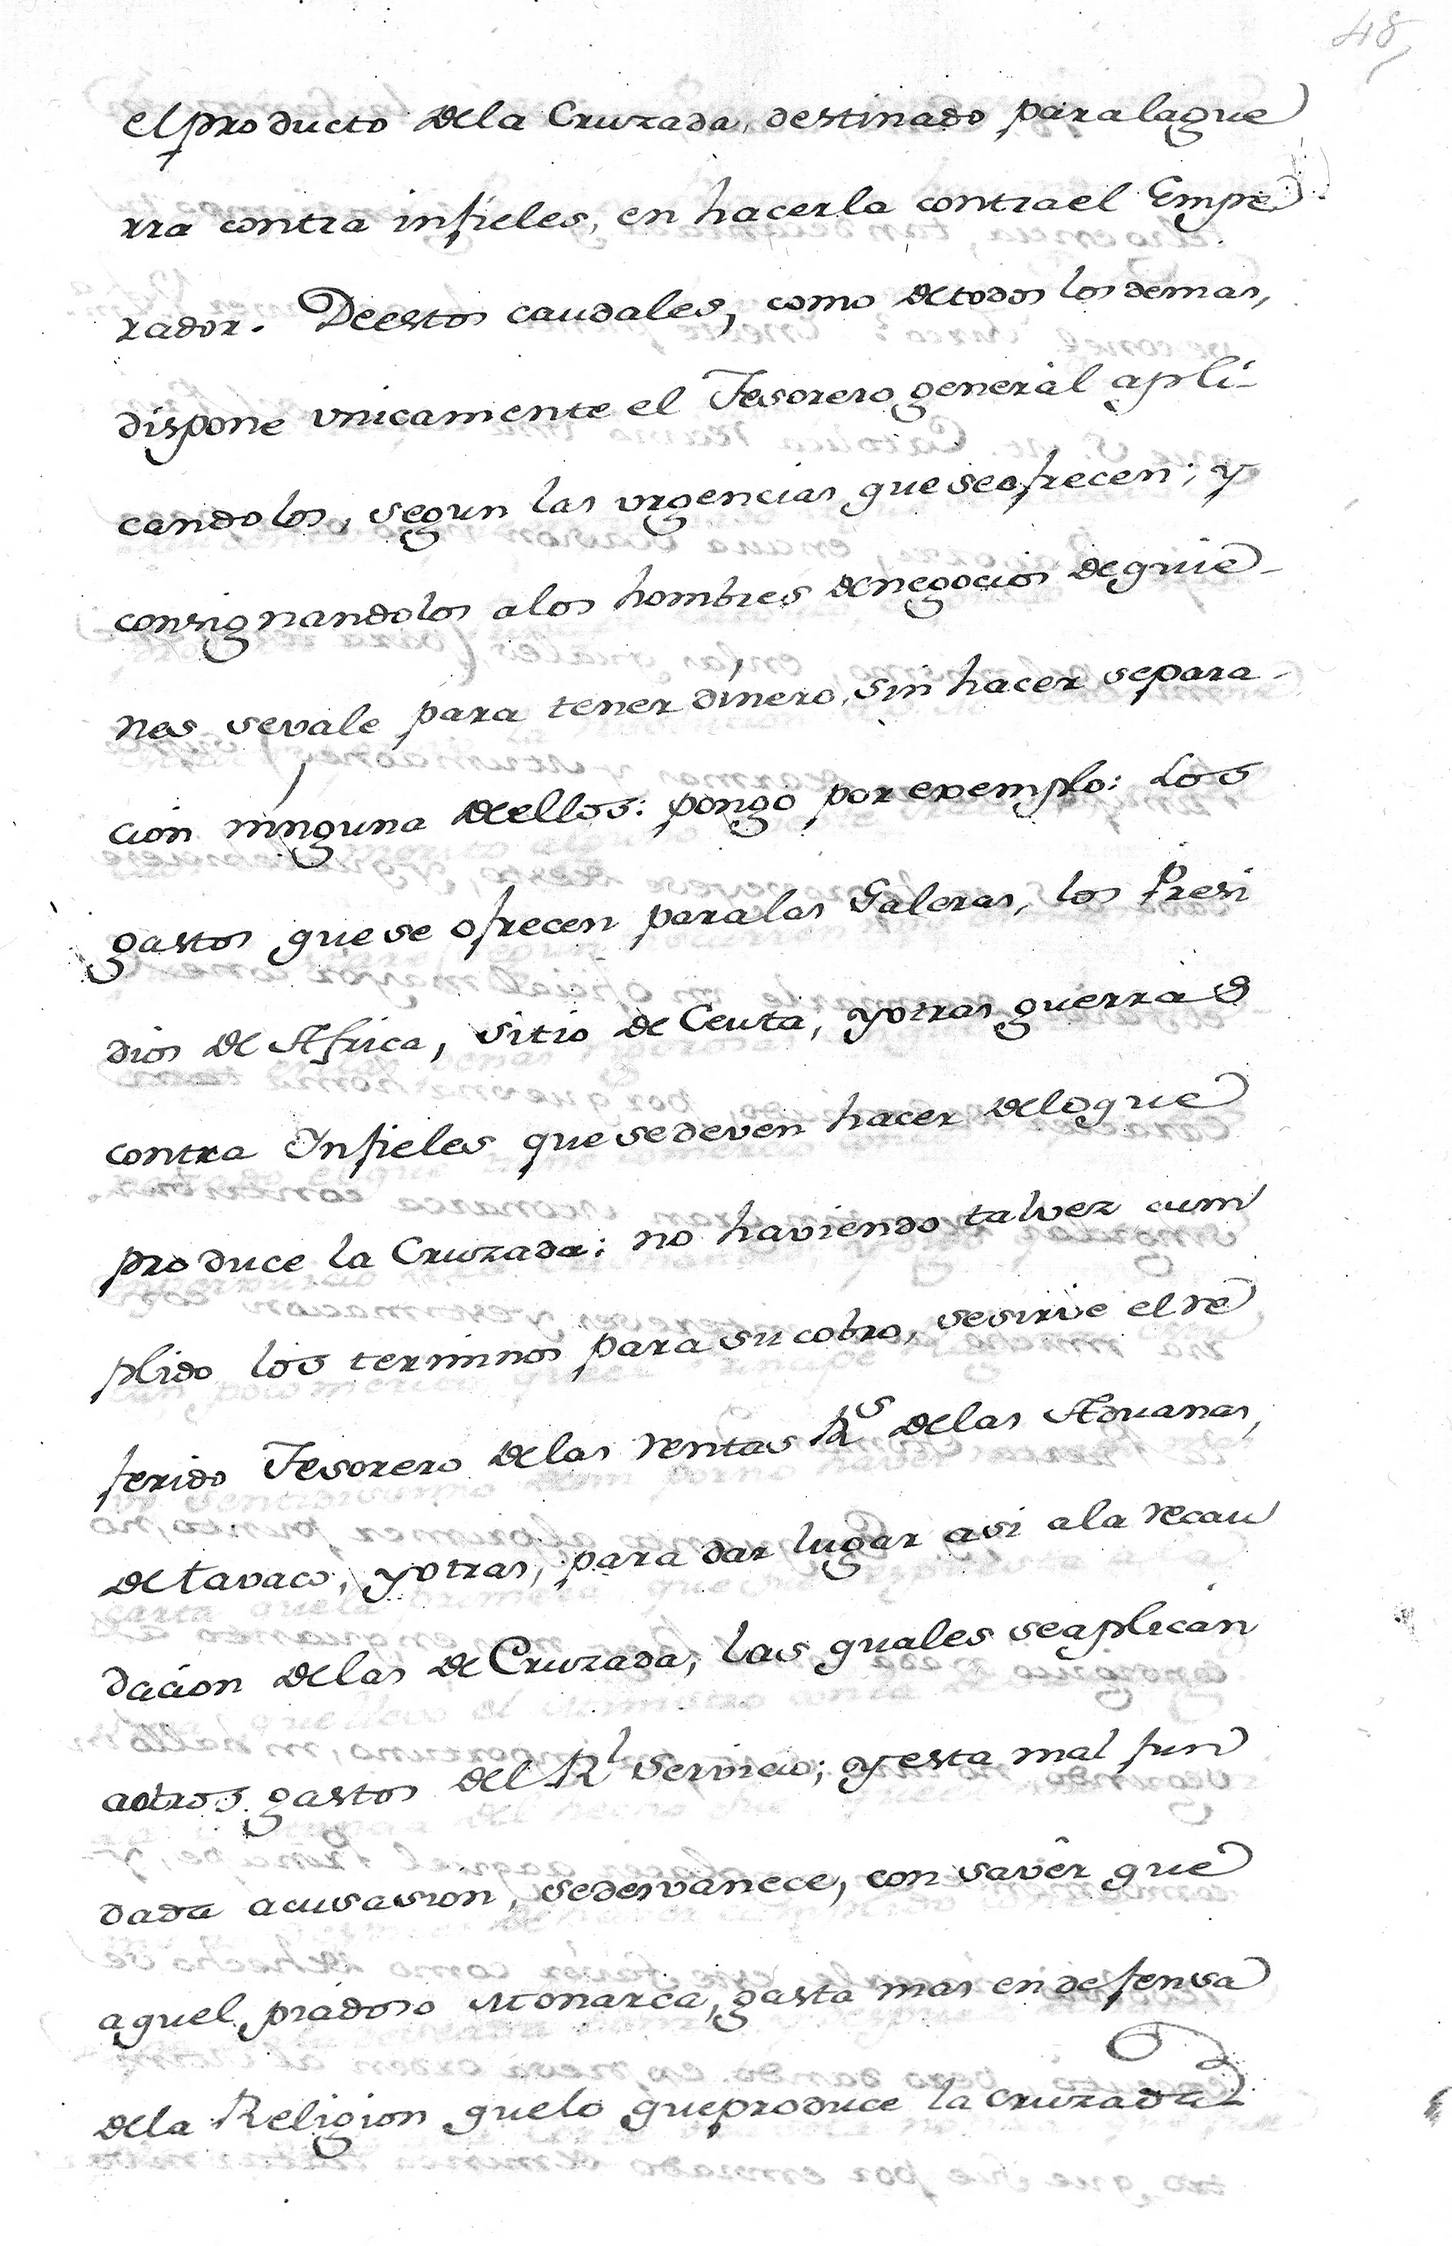 48
el producto de la Cruzada, destinado para la gue
rra contra infieles, en hacerla contra el Empe
rador. De estos caudales, como de todos los demas,
dispone vnicamente el Tesorero general apli-
candolos, segun las vrgencias que se ofrecen; y
consignandolos a los hombres de negocios de quie-
nes se vale para tener dinero, sin hacer separa-
cion ninguna de ellos: pongo por exemplo: Los
gastos que se ofrecen para las Galeras, los Presi
dios de Africa, sitio de Ceuta, y otras guerras
contra Infieles que se deven hacer de lo que
produce la Cruzada: no haviendo talvez cum
plido los terminos para su cobro, se sirve el re
ferido Tesorero de las rentas Rs de las Aduanas,
de tavaco, y otras, para dar lugar asi a la recau
dacion de las de Cruzada, las quales se aplican
a otros gastos del Rl servicio; y esta mal fun
dada acusasion, se desvanece, con savêr que
aquel piadoso Monarca, gasta mas en defensa
de la Religion que lo que produce la Cruzada